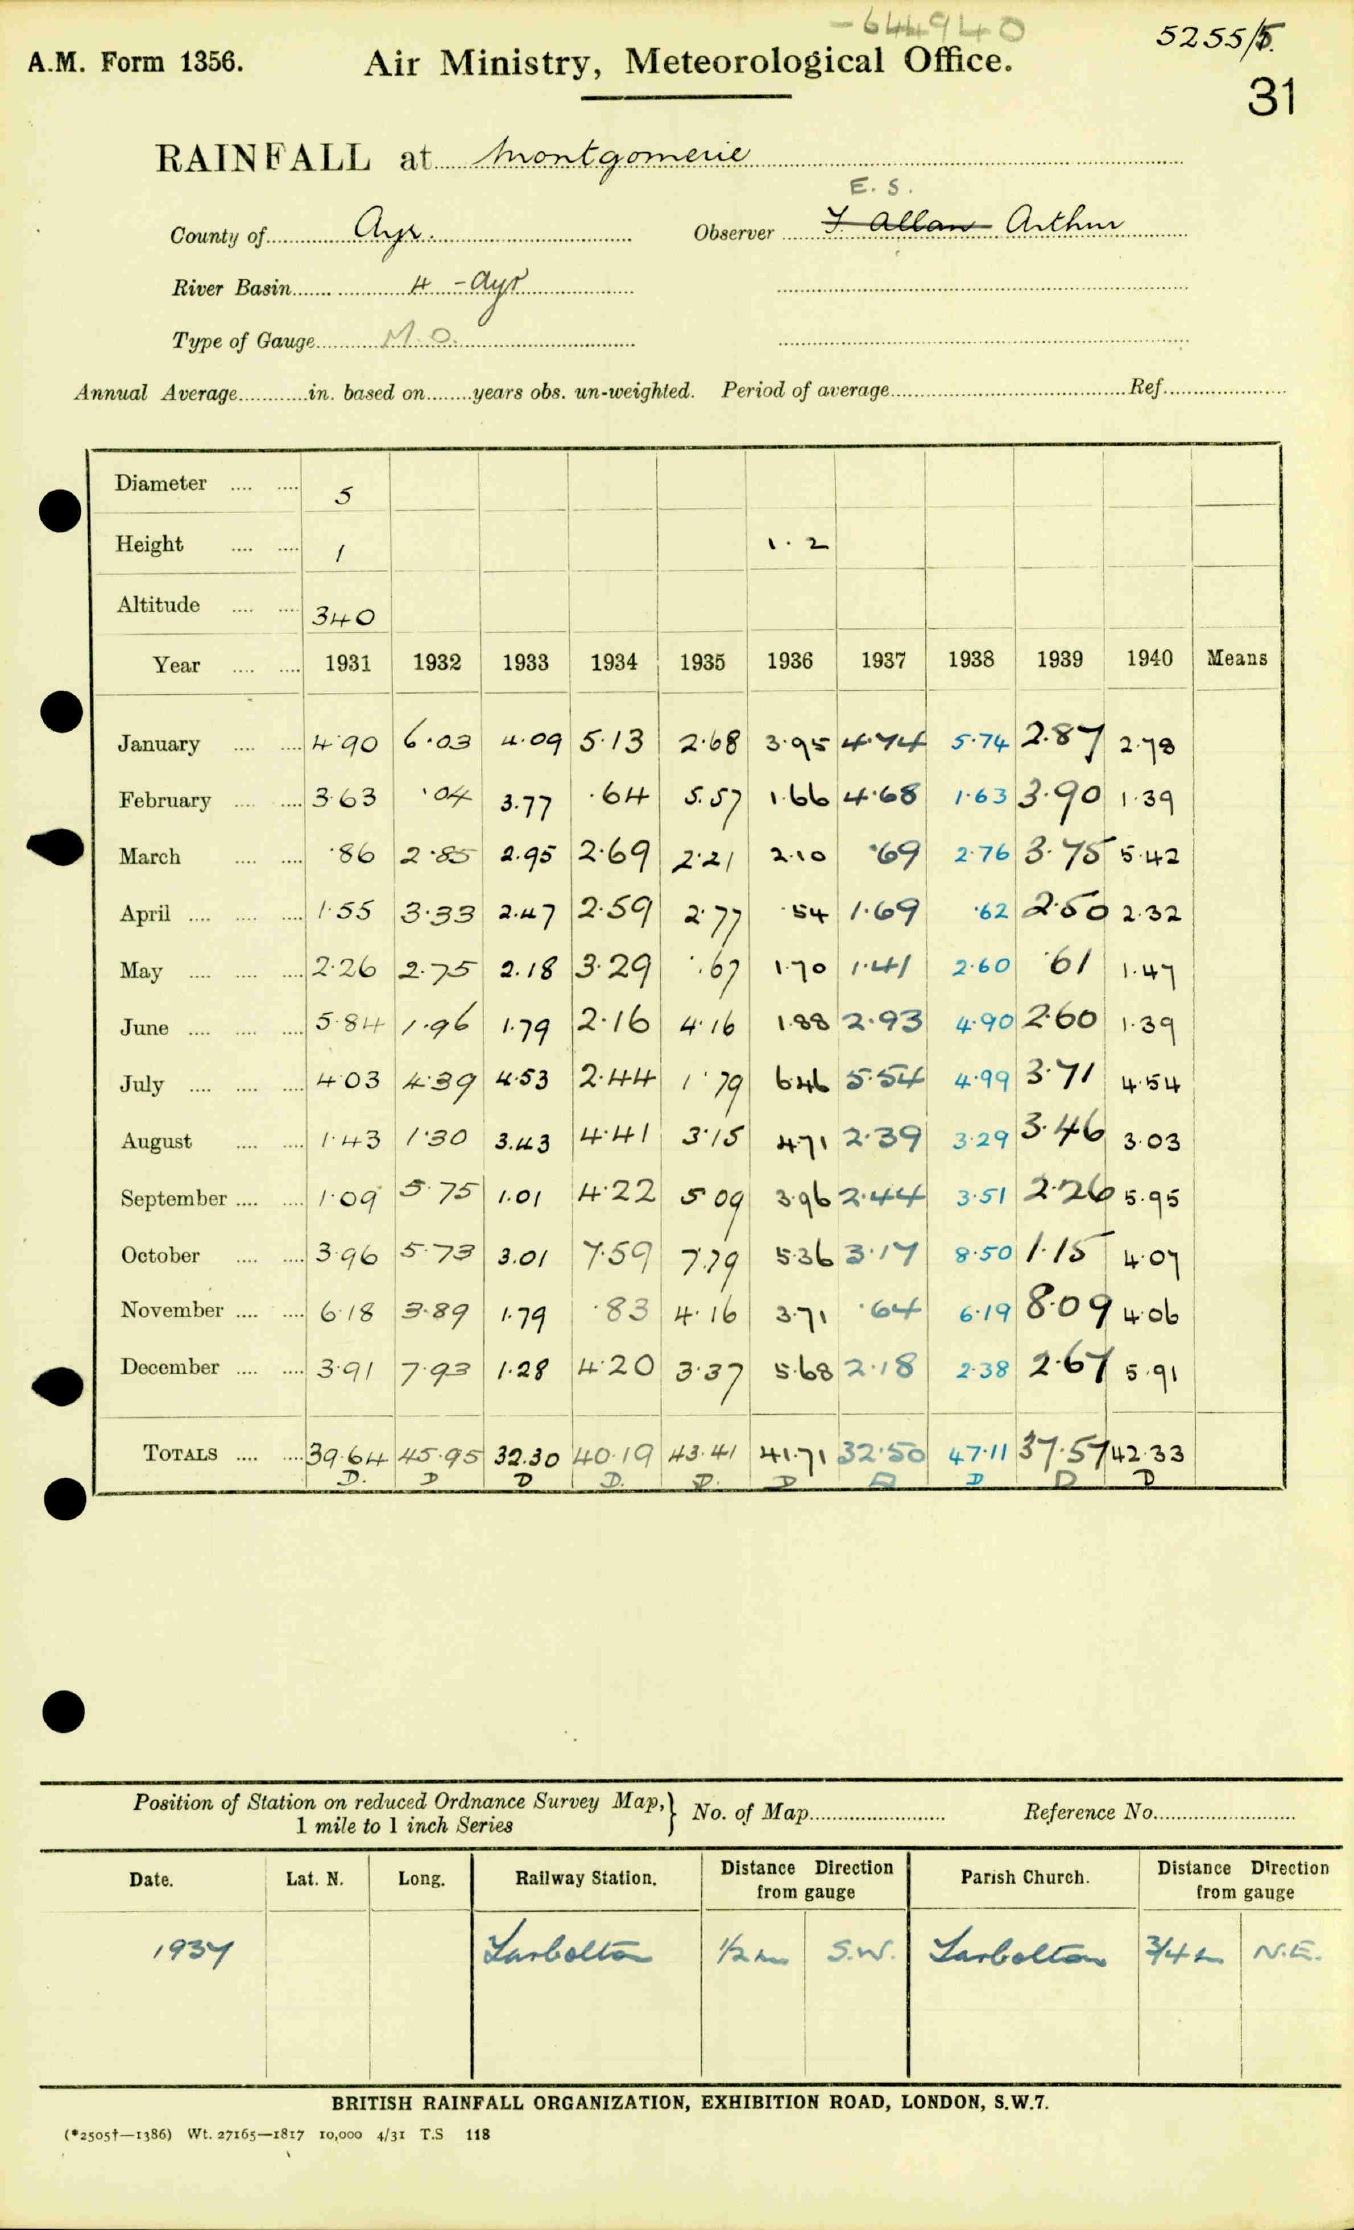 -644940
5255/5.
A.M. Form 1356. Air Ministry, Meteorological Office.
31
RAINFALL at Montgomerie
E. S.
County of Ayr. Observer Allan Arthur
River Basin 4 - Ayr
Type of Gauge M.O.
Annual Average............in. based on........years obs. un-weighted. Period of average............Ref............
Diameter .... .... 5
Height .... .... 1 1.2
Altitude .... .... 340
Year .... .... 1931 1932 1933 1934 1935 1936 1937 1938 1939 1940 Means
January .... .... 4.90 6.03 4.09 5.13 2.68 3.95 4.74 5.74 2.87 2.78
February .... .... 3.63 .04 3.77 .64 5.57 1.66 4.68 1.63 3.90 1.39
March .... .... .86 2.85 2.95 2.69 2.21 2.10 .69 2.76 3.75 5.42
April .... .... .... 1.55 3.33 2.47 2.59 2.77 .54 1.69 .62 2.50 2.32
May .... .... .... 2.26 2.75 2.18 3.29 .67 1.70 1.41 2.60 .61 1.47
June .... .... .... 5.84 1.96 1.79 2.16 4.16 1.88 2.93 4.90 2.60 1.39
July .... .... .... 4.03 4.39 4.53 2.44 1.79 6.46 5.54 4.99 3.71 4.54
August .... .... 1.43 1.30 3.43 4.41 3.15 4.71 2.39 3.29 3.46 3.03
September .... .... 1.09 5.75 1.01 4.22 5.09 3.96 2.44 3.51 2.26 5.95
October .... .... 3.96 5.73 3.01 7.59 7.79 5.36 3.17 8.50 1.15 4.07
November .... .... 6.18 3.89 1.79 .83 4.16 3.71 .64 6.19 8.09 4.06
December .... .... 3.91 7.93 1.28 4.20 3.37 5.68 2.18 2.38 2.67 5.91
TOTALS .... .... 39.64 45.95 32.30 40.19 43.41 41.71 32.50 47.11 37.57 42.33
D. D D D. D. D D D D D
Position of Station on reduced Ordnance Survey Map, } No. of Map............ Reference No............
1 mile to 1 inch Series
Date. Lat. N. Long. Railway Station. Distance Direction from gauge Parish Church. Distance Direction from gauge
1937 Tarbolton 1/2 m S.W. Tarbolton 3/4 m N.E.
BRITISH RAINFALL ORGANIZATION, EXHIBITION ROAD, LONDON, S.W.7.
(*2505†—1386) Wt. 27165—1817 10,000 4/31 T.S 118